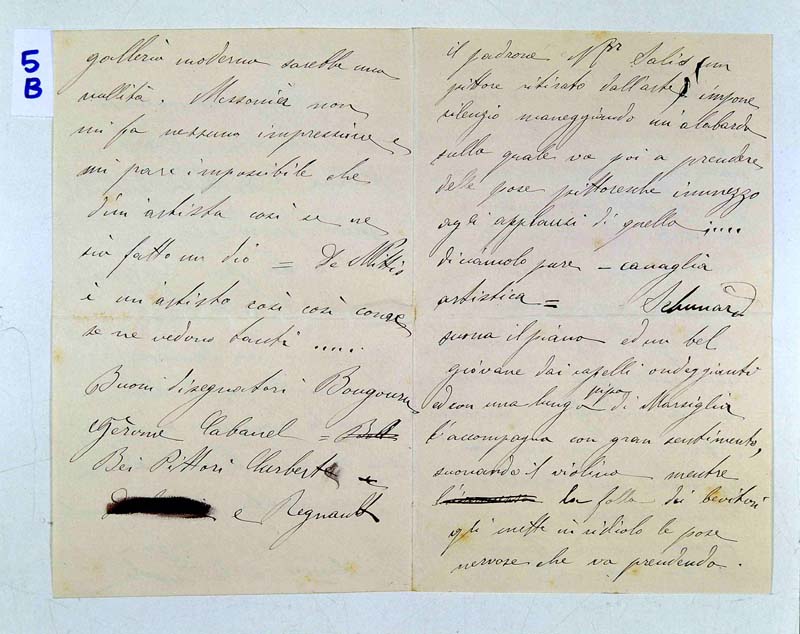 5
B
galleria moderna sarebbe una
nullità. Messonier non
mi fa nessuna impressione e
mi pare impossibile che
d'un artista così se ne
sia fatto un dio = De Nittis
è un artista così così come
se ne vedono tanti .....
Buoni disegnatori Bouguerau
Gerome Cabanel =
Bei Pittori Curbert
e Regnault
il padrone Mr Salis (un
pittore ritirato dall'arte) impone
silenzio maneggiando un'alabarda
sulla quale va poi a prendere
delle pose pittoresche in mezzo
agli applausi di quella .....
diciamolo pure - canaglia
artistica = Schunard
suona il piano ed un bel
giovane dai capelli ondeggianti
ed con una lunga pipa di Marsiglia
l'accompagna con gran sentimento,
suonando il violino mentre
la folla dei bevitori
gli mette in ridicolo le pose
nervose che va prendendo.